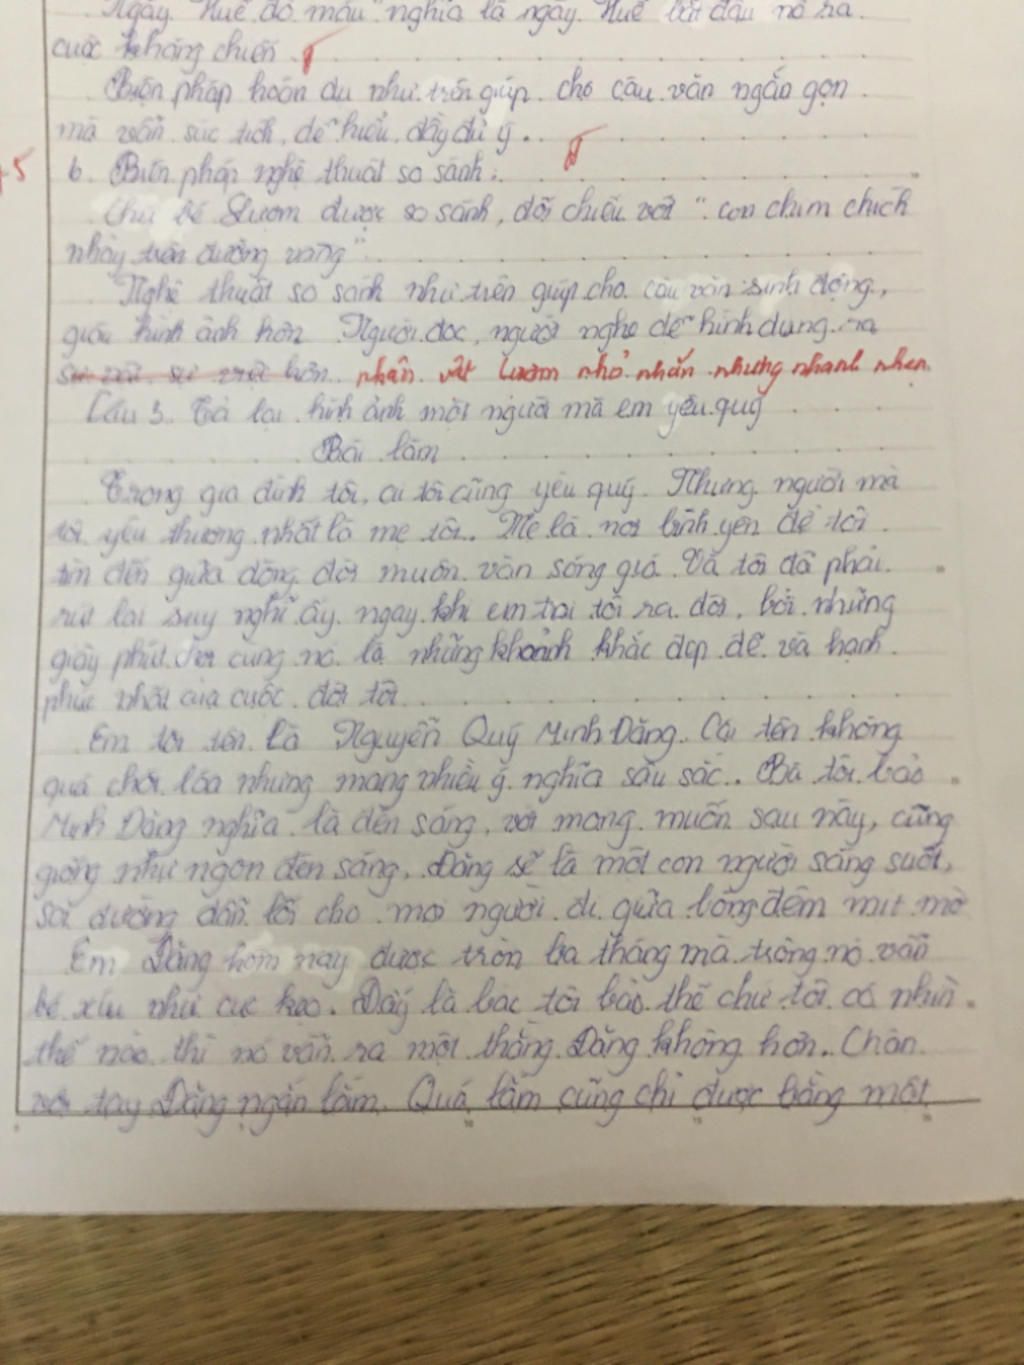 "Ngày Huế đổ máu" nghĩa là ngày Huế bắt đầu nổ ra
cuộc kháng chiến.
Biện pháp hoán dụ như trên giúp cho câu văn ngắn gọn
mà vẫn súc tích, dễ hiểu, đầy đủ ý.
5
b. Biện pháp nghệ thuật so sánh:
Chú bé Lượm được so sánh, đối chiếu với "con chim chích
nhảy trên đường vàng"
Nghệ thuật so sánh như trên giúp cho câu văn sinh động,
giàu hình ảnh hơn. Người đọc, người nghe dễ hình dung ra
hơn. nhân vật Lượm nhỏ nhắn nhưng nhanh nhẹn.
Câu 3. Tả lại hình ảnh một người mà em yêu quý
Bài làm
Trong gia đình tôi, ai tôi cũng yêu quý. Nhưng người mà
tôi yêu thương nhất là mẹ tôi. Mẹ là nơi bình yên để tôi
tìm đến giữa dòng đời muôn vàn sóng gió. Và tôi đã phải
rút lại suy nghĩ ấy ngay khi em trai tôi ra đời, bởi những
giây phút cùng nó là những khoảnh khắc đẹp đẽ và hạnh
phúc nhất của cuộc đời tôi.
Em tôi tên là Nguyễn Quý Minh Đăng. Cái tên không
quá chói lóa nhưng mang nhiều ý nghĩa sâu sắc. Bà tôi bảo
Minh Đăng nghĩa là đèn sáng, với mong muốn sau này, cũng
giống như ngọn đèn sáng, Đăng sẽ là một con người sáng suốt,
soi đường dẫn lối cho mọi người đi giữa bóng đêm mịt mờ
Em Đăng hôm nay được tròn ba tháng mà trông nó vẫn
bé xíu như cục kẹo. Đấy là bác tôi bảo thế chứ tôi có nhìn
thế nào thì nó vẫn ra một thằng Đăng không hơn. Chân
với tay Đăng ngắn lắm. Quá lắm cũng chỉ được bằng một